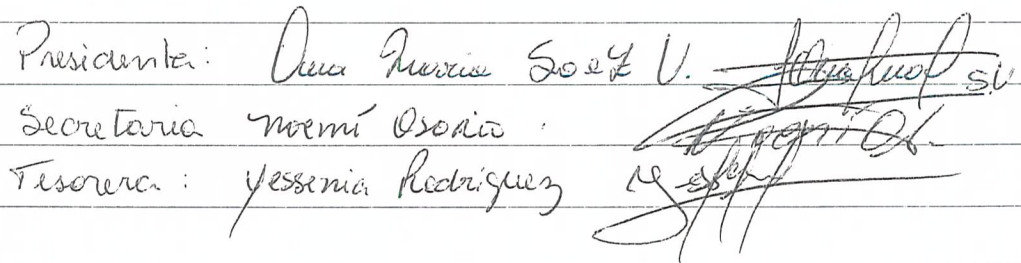 Presidenta: Ana Maria Soez V.
Secretaria Noemí Osorio
Tesorera: Yessenia Rodriguez